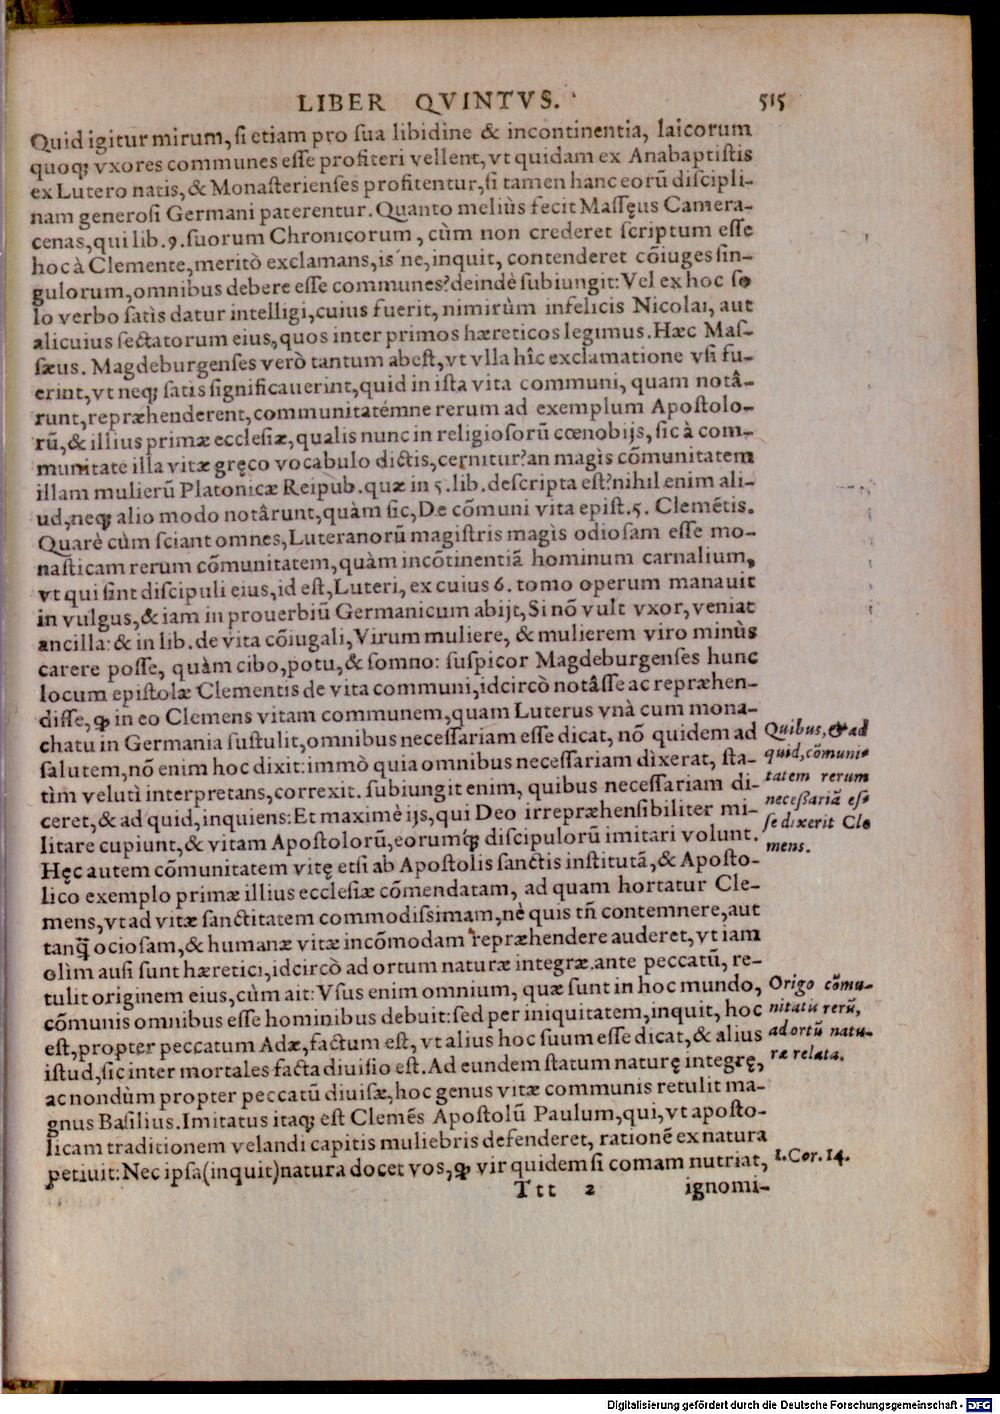 LIBER QVINTVS. 515
Quid igitur mirum, si etiam pro sua libidine & incontinentia, laicorum
quoq; vxores communes esse profiteri vellent, vt quidam ex Anabaptistis
ex Lutero natis, & Monasterienses profitentur, si tamen hanc eorũ discipli-
nam generosi Germani paterentur. Quanto meliùs fecit Massęus Camera-
cenas, qui lib. 9. suorum Chronicorum, cùm non crederet scriptum esse
hoc à Clemente, meritò exclamans, is ne, inquit, contenderet cõiuges sin-
gulorum, omnibus debere esse communes? deindè subiungit: Vel ex hoc so
lo verbo satìs datur intelligi, cuius fuerit, nimirùm infelicis Nicolai, aut
alicuius sectatorum eius, quos inter primos hæreticos legimus. Hæc Mas-
sæus. Magdeburgenses verò tantum abest, vt vlla hîc exclamatione vsi fu-
erint, vt neq; satis significauerint, quid in ista vita communi, quam notâ-
runt, repræhenderent, communitatémne rerum ad exemplum Apostolo-
rũ, & illius primæ ecclesiæ, qualis nunc in religiosorũ cœnobijs, sic à com-
munitate illa vitæ gręco vocabulo dictis, cernitur? an magìs cõmunitatem
illam mulierũ Platonicæ Reipub. quæ in 5. lib. descripta est? nihil enim ali-
ud, neq; alio modo notârunt, quàm sic, De cõmuni vita epist. 5. Clemẽtis.
Quarè cùm sciant omnes, Luteranorũ magistris magìs odiosam esse mo-
nasticam rerum cõmunitatem, quàm incõtinentiã hominum carnalium,
vt qui sint discipuli eius, id est, Luteri, ex cuius 6. tomo operum manauit
in vulgus, & iam in prouerbiũ Germanicum abijt, Si nõ vult vxor, veniat
ancilla: & in lib. de vita cõiugali, Virum muliere, & mulierem viro minùs
carere posse, quàm cibo, potu, & somno: suspicor Magdeburgenses hunc
locum epistolæ Clementis de vita communi, idcircò notâsse ac repræhen-
disse, ꝙ in eo Clemens vitam communem, quam Luterus vnà cum mona-
chatu in Germania sustulit, omnibus necessariam esse dicat, nõ quidem ad
salutem, nõ enim hoc dixit: immò quia omnibus necessariam dìxerat, sta-
tìm velutì interpretans, correxit. subiungit enim, quibus necessariam di-
ceret, & ad quid, inquiens: Et maximè ijs, qui Deo irrepræhensibiliter mi-
litare cupiunt, & vitam Apostolorũ, eorumq́; discipulorũ imitari volunt.
Hęc autem cõmunitatem vitę etsi ab Apostolis sanctis institutã, & Aposto-
lico exemplo primæ illius ecclesiæ cõmendatam, ad quam hortatur Cle-
mens, vt ad vitæ sanctitatem commodissimam, nè quis tñ contemnere, aut
tanq̃ ociosam, & humanæ vitæ incõmodam repræhendere auderet, vt iam
olìm ausi sunt hæretici, idcircò ad ortum naturæ integræ ante peccatũ, re-
tulit originem eius, cùm ait: Vsus enim omnium, quæ sunt in hoc mundo,
cõmunis omnibus esse hominibus debuit: sed per iniquitatem, inquit, hoc
est, propter peccatum Adæ, factum est, vt alius hoc suum esse dicat, & alius
istud, sic inter mortales facta diuisio est. Ad eundem statum naturę integrę,
ac nondùm propter peccatũ diuisæ, hoc genus vitæ communis retulit ma-
gnus Basilius. Imitatus itaq; est Clemẽs Apostolũ Paulum, qui, vt aposto-
licam traditionem velandi capitis muliebris defenderet, rationẽ ex natura
petiuit: Nec ipsa (inquit) natura docet vos, ꝙ vir quidem si comam nutriat,
Ttt 2 ignomi-
Quibus, & ad
quid, cõmuni-
tatem rerum
necessariã es-
se dixerit Cle
mens.
Origo cõmu-
nitatũ rerũ,
ad ortũ natu-
ræ relata.
1. Cor. 14.
Digitalisierung gefördert durch die Deutsche Forschungsgemeinschaft - DFG